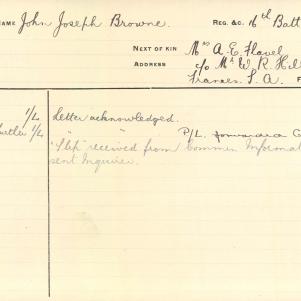 NAME John Joseph Browne. REG. &C. 16th Batt
NEXT OF KIN Mrs A. E. Flavel
ADDRESS c/o Mr W. R. Hil
Frances S. A.
1/L Letter acknowledged.
1/L " " P/L. forwarded
"Slip" received from Common Informat
sent Inquirer.